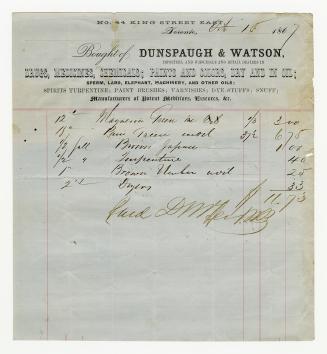 No. 44 KING STREET EAST,
Toronto, Oct 15 1867
Bought of DUNSPAUGH & WATSON,
IMPORTERS, AND WHOLESALE AND RETAIL DEALERS IN
DRUGS, MEDICINES, CHEMICALS; PAINTS AND COLORS, DRY AND IN OIL;
SPERM, LARD, ELEPHANT, MACHINERY, AND OTHER OILS;
SPIRITS TURPENTINE; PAINT BRUSHES; VARNISHES; DYE-STUFFS; SNUFF;
Manufacturers of Patent Medicines, Essences, &c.
12 Green 3.00
Green 6.75
1/2 gall Brown Japan 1.00
1/2 " Turpentine 40
1 Brown Umber 25
2 Dryers 33
$ 11.73